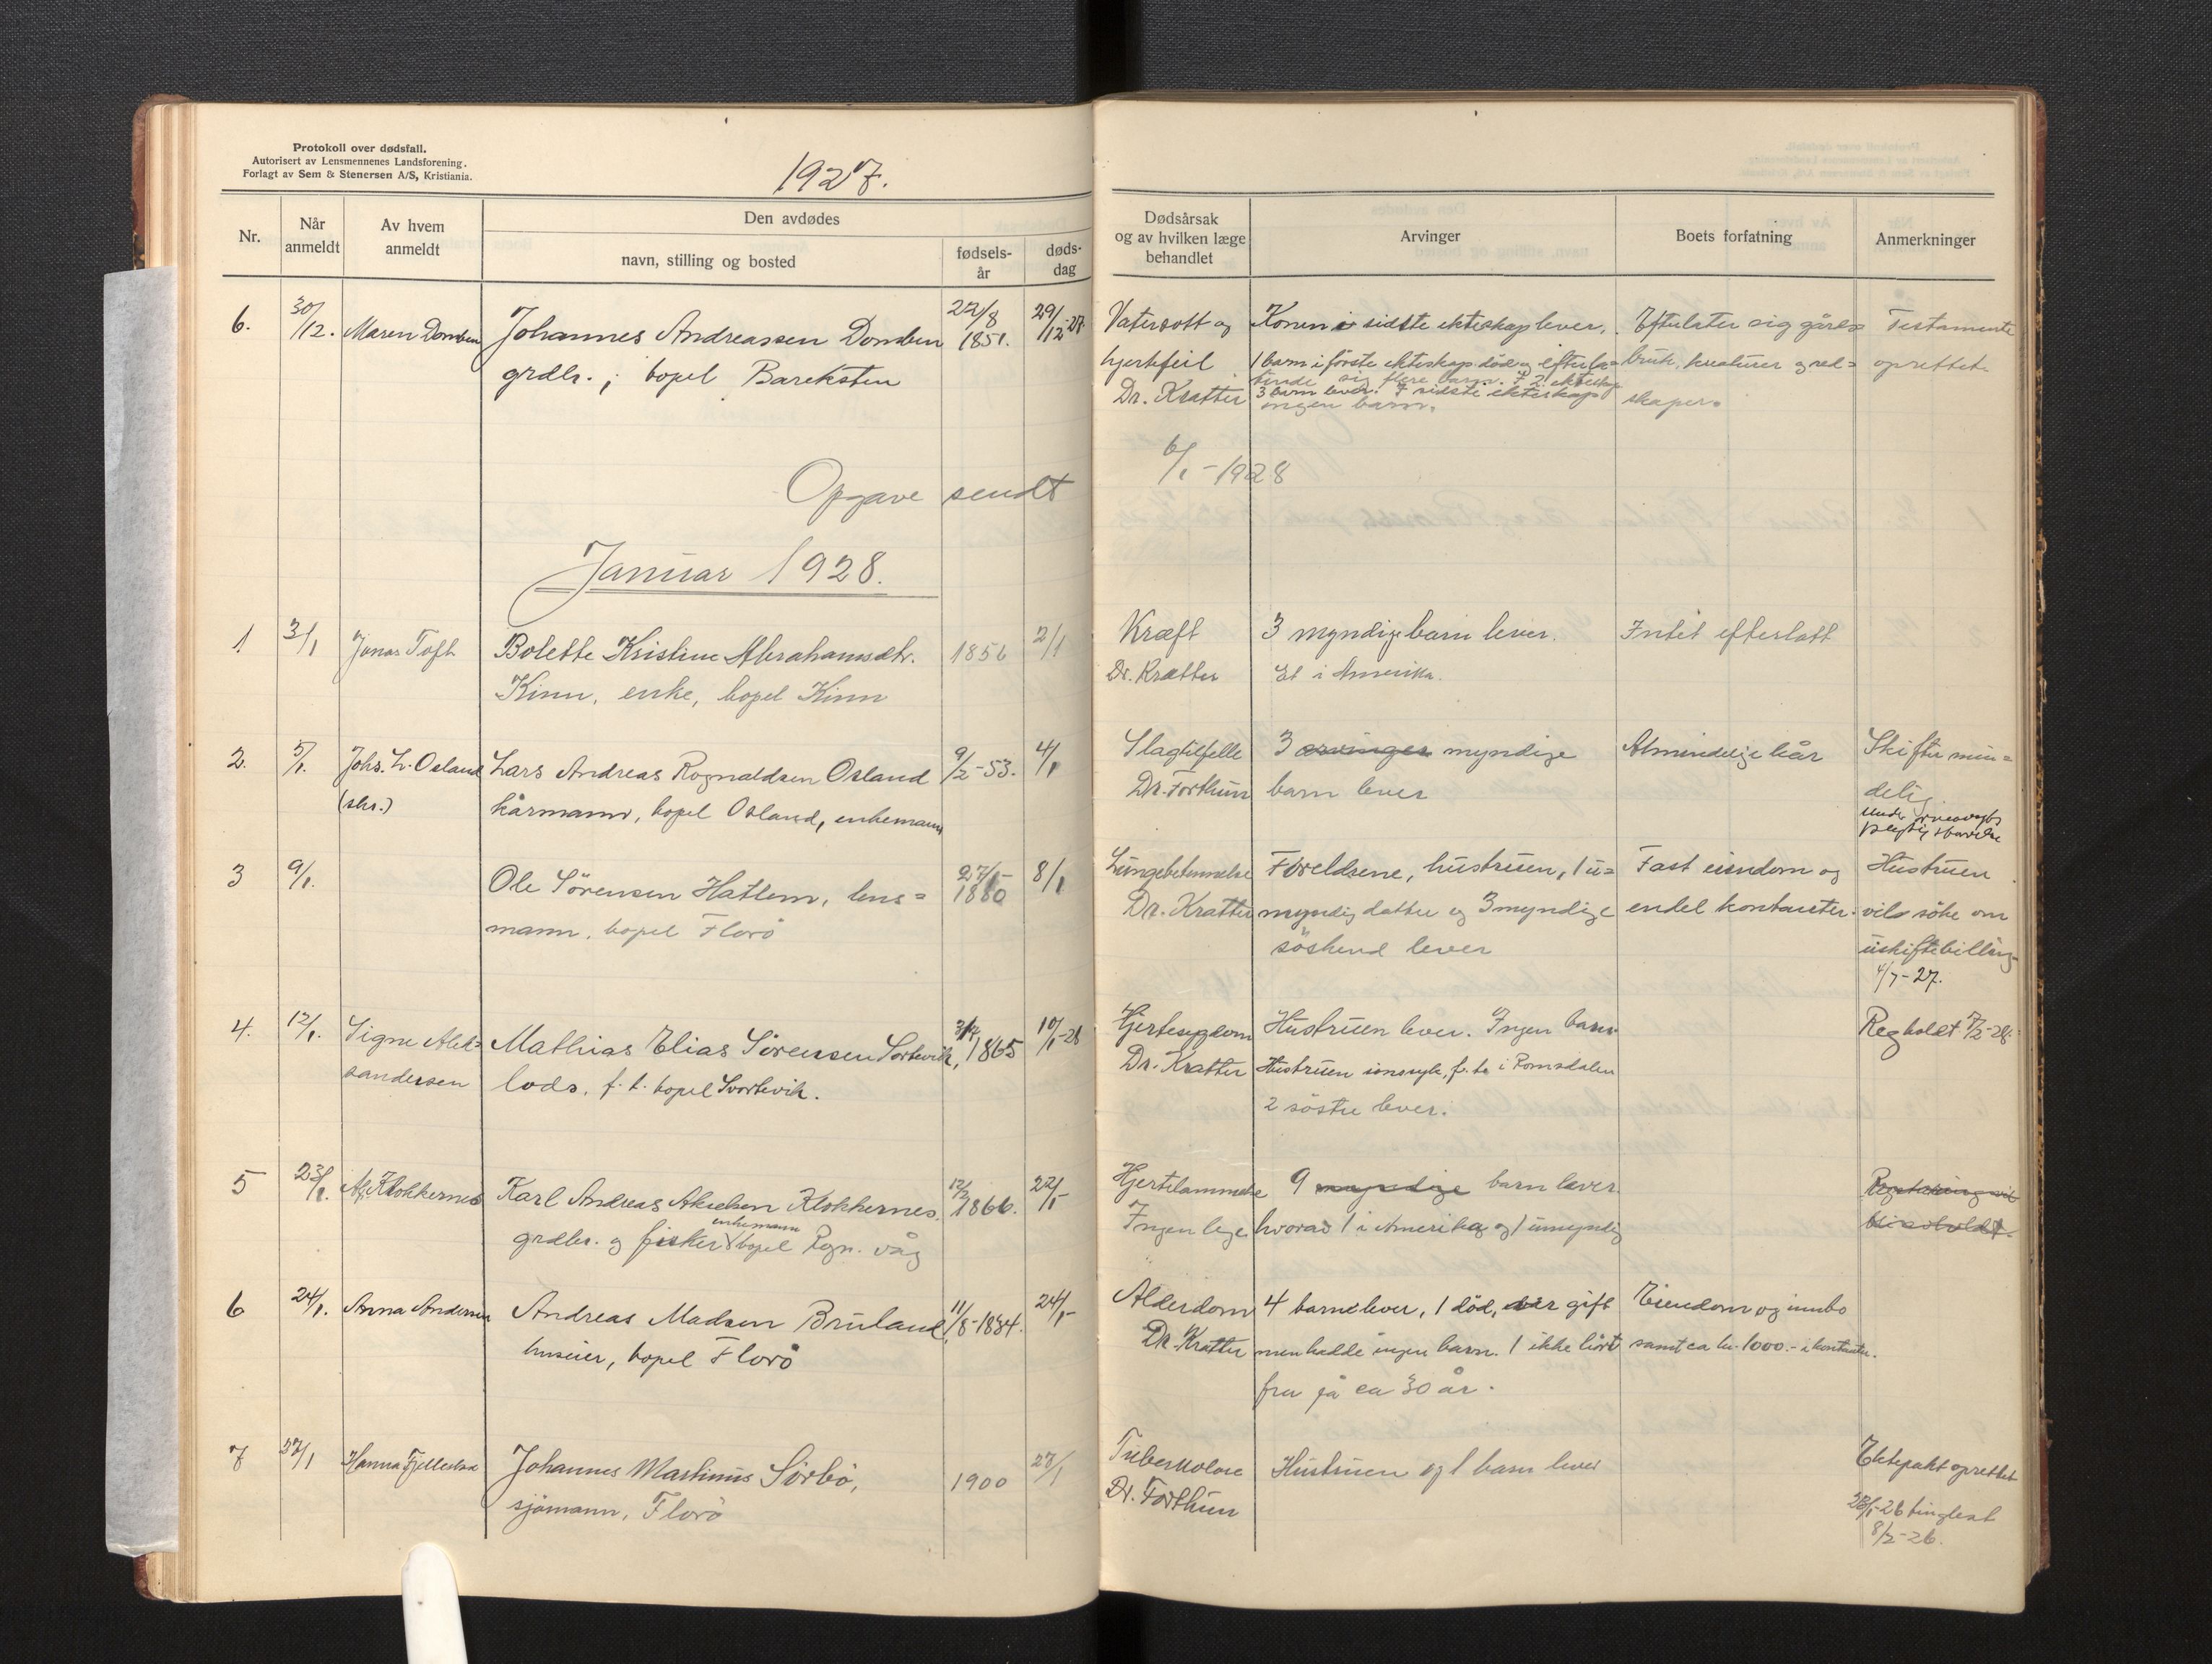 Protokoll over dødsfall.
Autorisert av Lensmennenes Landsforening.
Forlagt av Sem & Stenersen A/S, Kristiania.
1927.
Nr.
Når anmeldt
Av hvem anmeldt
Den avdødes
navn, stilling og bosted
fødsels-år
døds-dag
Dødsårsak
og av hvilken læge
behandlet
Arvinger
Boets forfatning
Anmerkninger
6. 30/12. Maren Domben Johannes Andreassen Domben 22/8 1851. 29/12-27
grdbr. ; bopel Bareksten
Vatersott og
hjertefeil
Dr. Kratter
Konen i sidste ekteskap lever.
1 barn i förste ekteskap död og efterla=
tende sig flere barn. I 2. ekteskap
3 barn lever. I sidste ekteskap
ingen barn.
Efterlater sig gårds=
bruk, kreaturer og red=
skaper.
Testamente
oprettet.
Opgave sendt 6/1-1928
Januar 1928.
1 3/1 Jonas Toft Bolette Kristine Abrahamsdtr. 1856 2/1
Kinn, enke, bopel Kinn
Kræft
Dr. Kratter
3 myndige barn lever.
Et i Amerika.
Intet efterlatt
2. 5/1. Johs. L. Osland Lars Andreas Rognaldsen Osland 9/2-53. 4/1
(skr.) kårmann, bopel Osland, enkemann
Slagtilfelle
Dr. Forthun
3 arvinger myndige
barn lever
Almindelige kår
Skifter min=
delig
under
3 9/1. Ole Sörensen Hatlem, lens= 27/5- 1880 8/1
mann, bopel Florö
Lungebetennelse
Dr. Kratter
Foreldrene, hustruen, 1 u=
myndig datter og 3 myndige
söskend lever
Fast eiendom og
endel kontanter.
Hustruen
vil söke om
uskiftebilling
4/7-27.
4. 12/1. Signe Alek= Mathias Elias Sörensen Sortevik, 1865 10/1-28
sandersen lods, f. t. bopel Svortevik.
Hjertesygdom
Dr. Kratter
Hustruen lever. Ingen barn.
Hustruen sinnsyk, f. t. i Romsdalen
2 söstre lever.
Reg holdt 7/2-28.
5 23/1. A. Klokkernes Karl Andreas Akselsen Klokkernes, 12/2 1866. 22/1
enkemann
grdbr. og fisker bopel Rgn. våg
Hjertelammelse
Ingen lege
9 myndige barn lever.
hvorav 1 i Amerika og 1 umyndig
Registrering vil
bli avholdt.
6 24/1. Anna Andersen Andreas Madsen Bruland, 11/8-1834. 24/1-
huseier, bopel Florö
Alderdom
Dr. Kratter
4 barn lever, 1 död, var gift
men hadde ingen barn. 1 ikke hört
fra på ca 30 år.
Eiendom og innbo
samt ca kr. 1000.- i kontanter.
7 27/1 Hanna Fjellestad Johannes Martinus Sörbö, 1900 27/1
sjömann, Florö
Tuberkolose
Dr. Forthun
Hustruen og 1 barn lever
Ektepakt oprettet
28/1-26 tinglest
8/2-26.